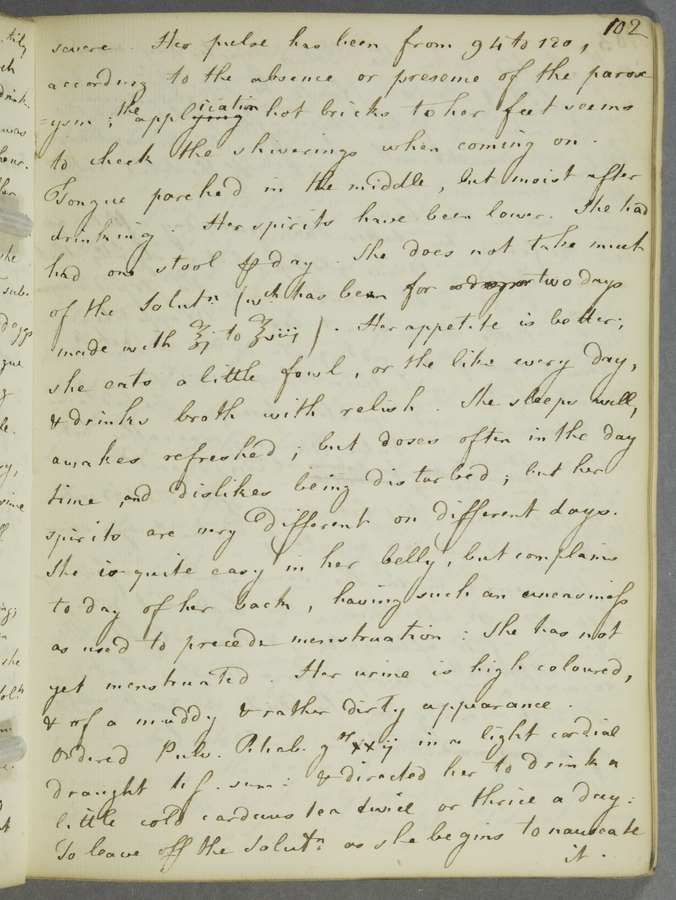 102
severe. Her pulse has been from 94 to 120,
according to the absence or presence of the parox
=ysm; the application hot bricks to her feet seems
to check the shiverings when coming on.
Tongue parched in the middle, but moist after
drinking. Her spirits have been lower. She had
had one stool ⅌ day. She does not take much
of the Solutn (wch has been for two days
made with ℥j to ℥viij). Her appetite is better;
she eats a little fowl, or the like every day,
& drinks broth with relish. She sleeps well,
awakes refreshed; but doses often in the day
time and dislikes being disturbed; but her
spirits are very different on different days.
She is quite easy in her belly, but complains
to day of her back, having such an uneasiness
as used to precede menstruation: she has not
yet menstruated. Her urine is high coloured,
& of a muddy & rather dirty appearance.
Ordered Pulv. Rhab. grs xxij in a light cordial
draught h. s. sum: & directed her to drink a
little cold carduus tea twice or thrice a day:
To leave off the Solutn as she begins to nauseate
it.